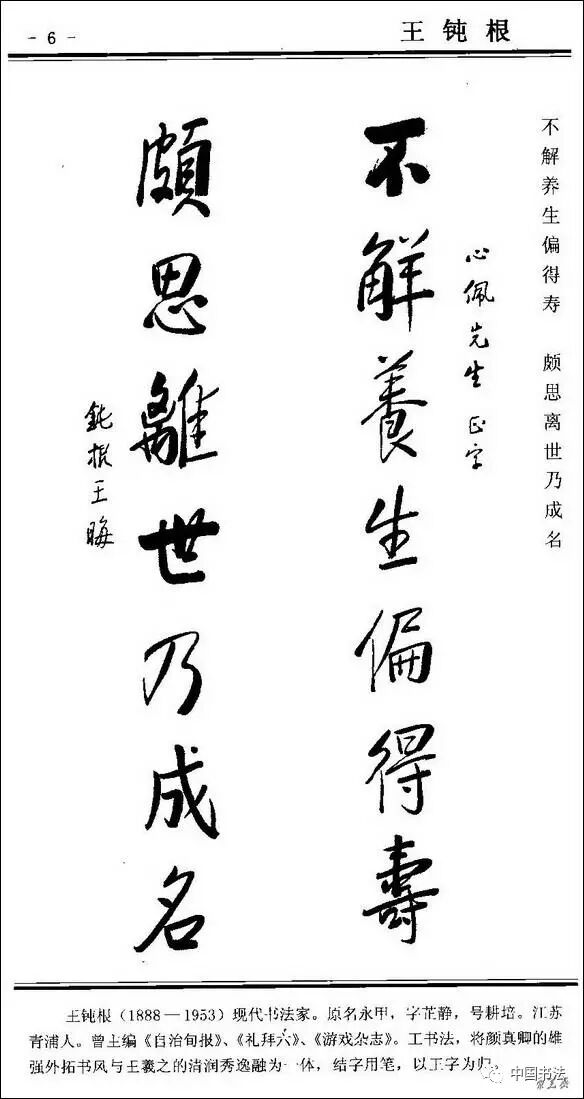 - 6 -
王钝根
不解养生偏得寿 颇思离世乃成名
不解養生偏得壽
心佩先生正字
頗思離世乃成名
鈍根王晦
王钝根(1888—1953)现代书法家。原名永甲,字芷静,号耕培。江苏
青浦人。曾主编《自治旬报》、《礼拜六》、《游戏杂志》。工书法,将颜真卿的雄
强外拓书风与王羲之的清润秀逸融为一体,结字用笔,以正字为归。
中国书法